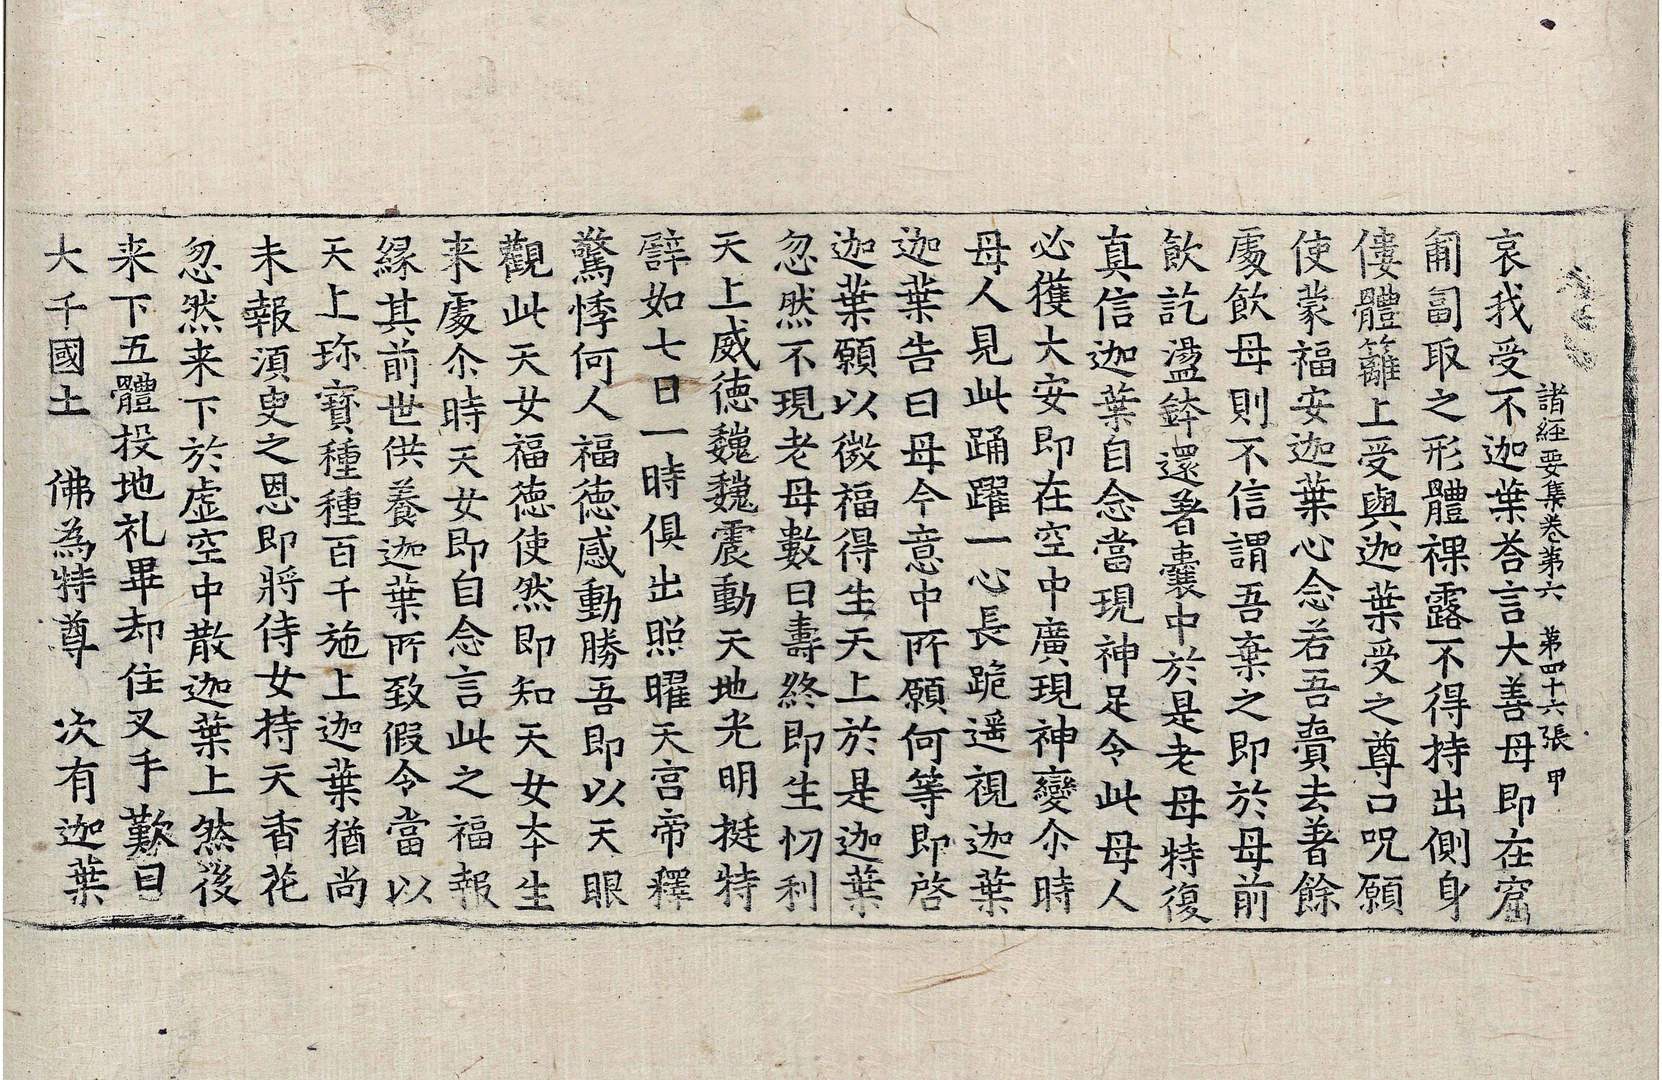 諸經要集卷第六　第四十六張　甲
哀我受不迦葉荅言大善母即在窟
匍匐取之形體裸露不得持出側身
僂體籬上受與迦葉受之尊口呪願
使蒙福安迦葉心念若吾賷去著餘
處飲母則不信謂吾棄之即於母前
飲訖盪鉢還著囊中於是老母特復
真信迦葉自念當現神足令此母人
必獲大安即在空中廣現神變尒時
母人見此踊躍一心長跪遥視迦葉
迦葉告曰母今意中所願何等即啓
迦葉願以微福得生天上於是迦葉
忽然不現老母數日壽終即生忉利
天上威德巍巍震動天地光明挺特
譬如七日一時俱出照曜天宫帝釋
驚悸何人福德感動勝吾即以天眼
觀此天女福德使然即知天女夲生
来處尒時天女即自念言此之福報
緣其前世供養迦葉所致假令當以
天上珎寳種種百千施上迦葉猶尚
未報湏臾之恩即將侍女持天香花
忽然来下於虛空中散迦葉上然後
来下五體投地礼畢却住叉手歎曰
大千國土　佛為特尊　次有迦葉